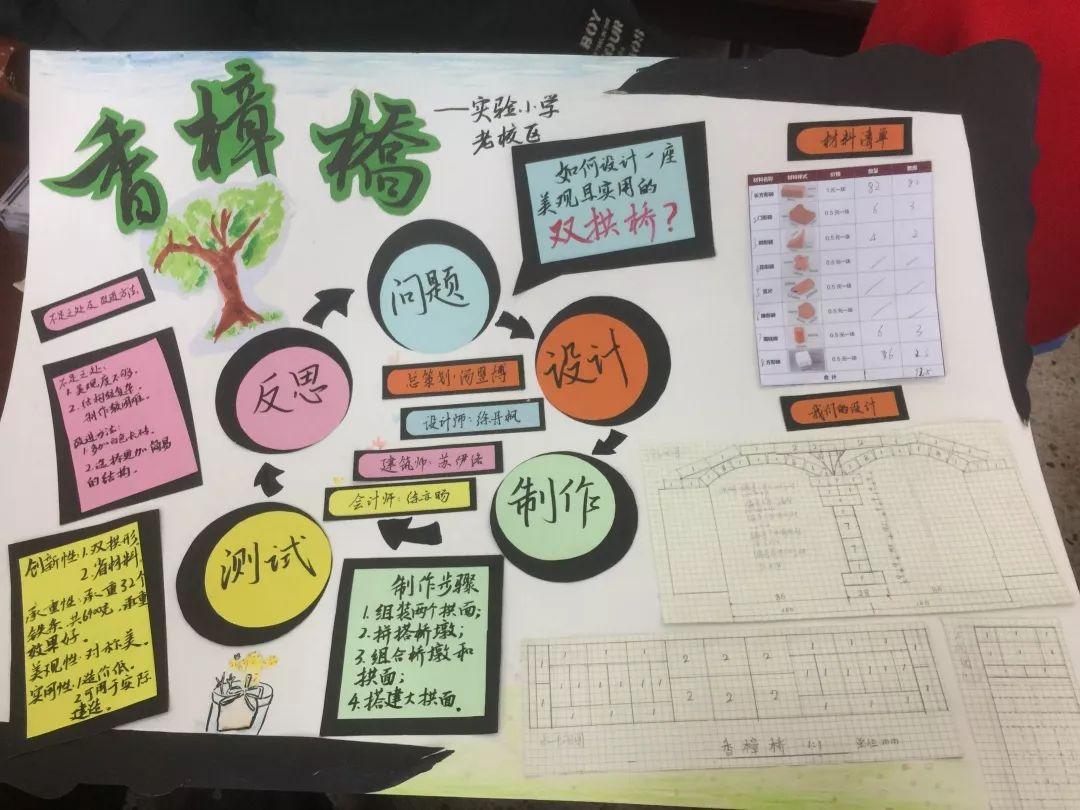 香樟橋
——实验小学
老校区
如何设计一座
美观且实用的
双拱桥?
材料清单
材料名称 材料样式 价格 数量 数据
长方形砖 1元一块 82 82
门形砖 0.5元一块 6 3
0.5元一块 4 2
0.5元一块
0.5元一块
0.5元一块
0.5元一块 6 3
方形砖 0.5元一块
合计
我们的设计
问题
设计
制作
测试
反思
总策划:汤显博
设计师:徐丹枫
建筑师:苏伊洛
会计师:徐立旸
不足之处及改进方法
不足之处:
1.美观度不够.
2.结构较复杂.
制作较困难.
改进方法:
1.多加白色长砖.
2.选择更加简易
的结构.
创新性:1.双拱形
2.省材料.
承重性:承重32个
铁条.共6400克.承重
效果好.
美观性:对称美.
实用性:1.造价低.
2.可用于实际
建造.
制作步骤
1.组装两个拱面;
2.拼搭桥墩;
3.组合桥墩和
拱面;
4.搭建大拱面.
香樟桥 1:1 单位:mm
BOY